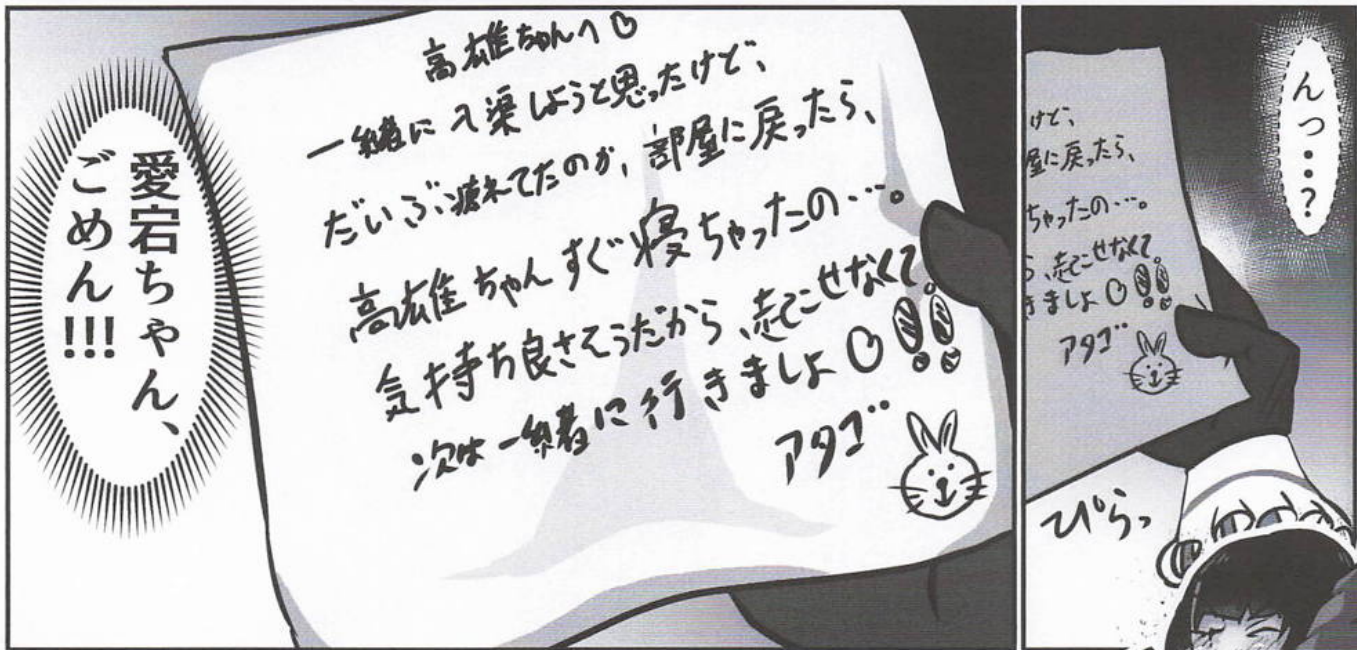 んっ・・・?
けど、
屋に戻ったら、
ちゃったの…。
ら、起こせなくて。
きましょ♡!!
アタゴ
ぴらっ
高雄ちゃんへ♡
一緒に入渠しようと思ったけど、
だいぶ疲れてたのか、部屋に戻ったら、
高雄ちゃんすぐ寝ちゃったの…。
気持ち良さそうだから、起こせなくて。
次は一緒に行きましょ♡!!
アタゴ
愛宕ちゃん、
ごめん!!!